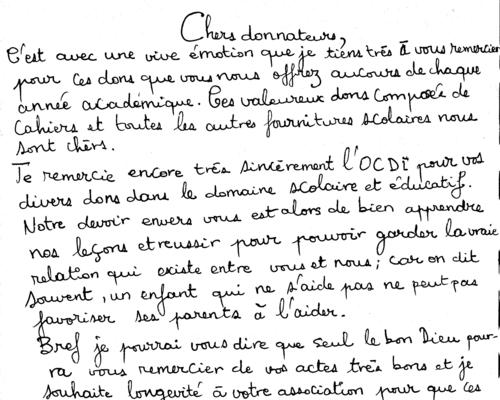 Chers donnateurs,
C'est avec une vive émotion que je tiens très à vous remercier
pour ces dons que vous nous offrez au cours de chaque
année académique. Ces valeureux dons composée de
Cahiers et toutes les autres fournitures scolaires nous
sont chèrs.
Je remercie encore très sincèrement l'OCDI pour vos
divers dons dans le domaine scolaire et éducatif.
Notre devoir envers vous est alors de bien apprendre
nos leçons et reussir pour pouvoir garder la vraie
relation qui existe entre vous et nous ; car on dit
souvent, un enfant qui ne s'aide pas ne peut pas
favoriser ses parents à l'aider.
Bref je pourrai vous dire que seul le bon Dieu pour-
ra vous remercier de vos actes très bons et je
souhaite longevité à votre association pour que ces